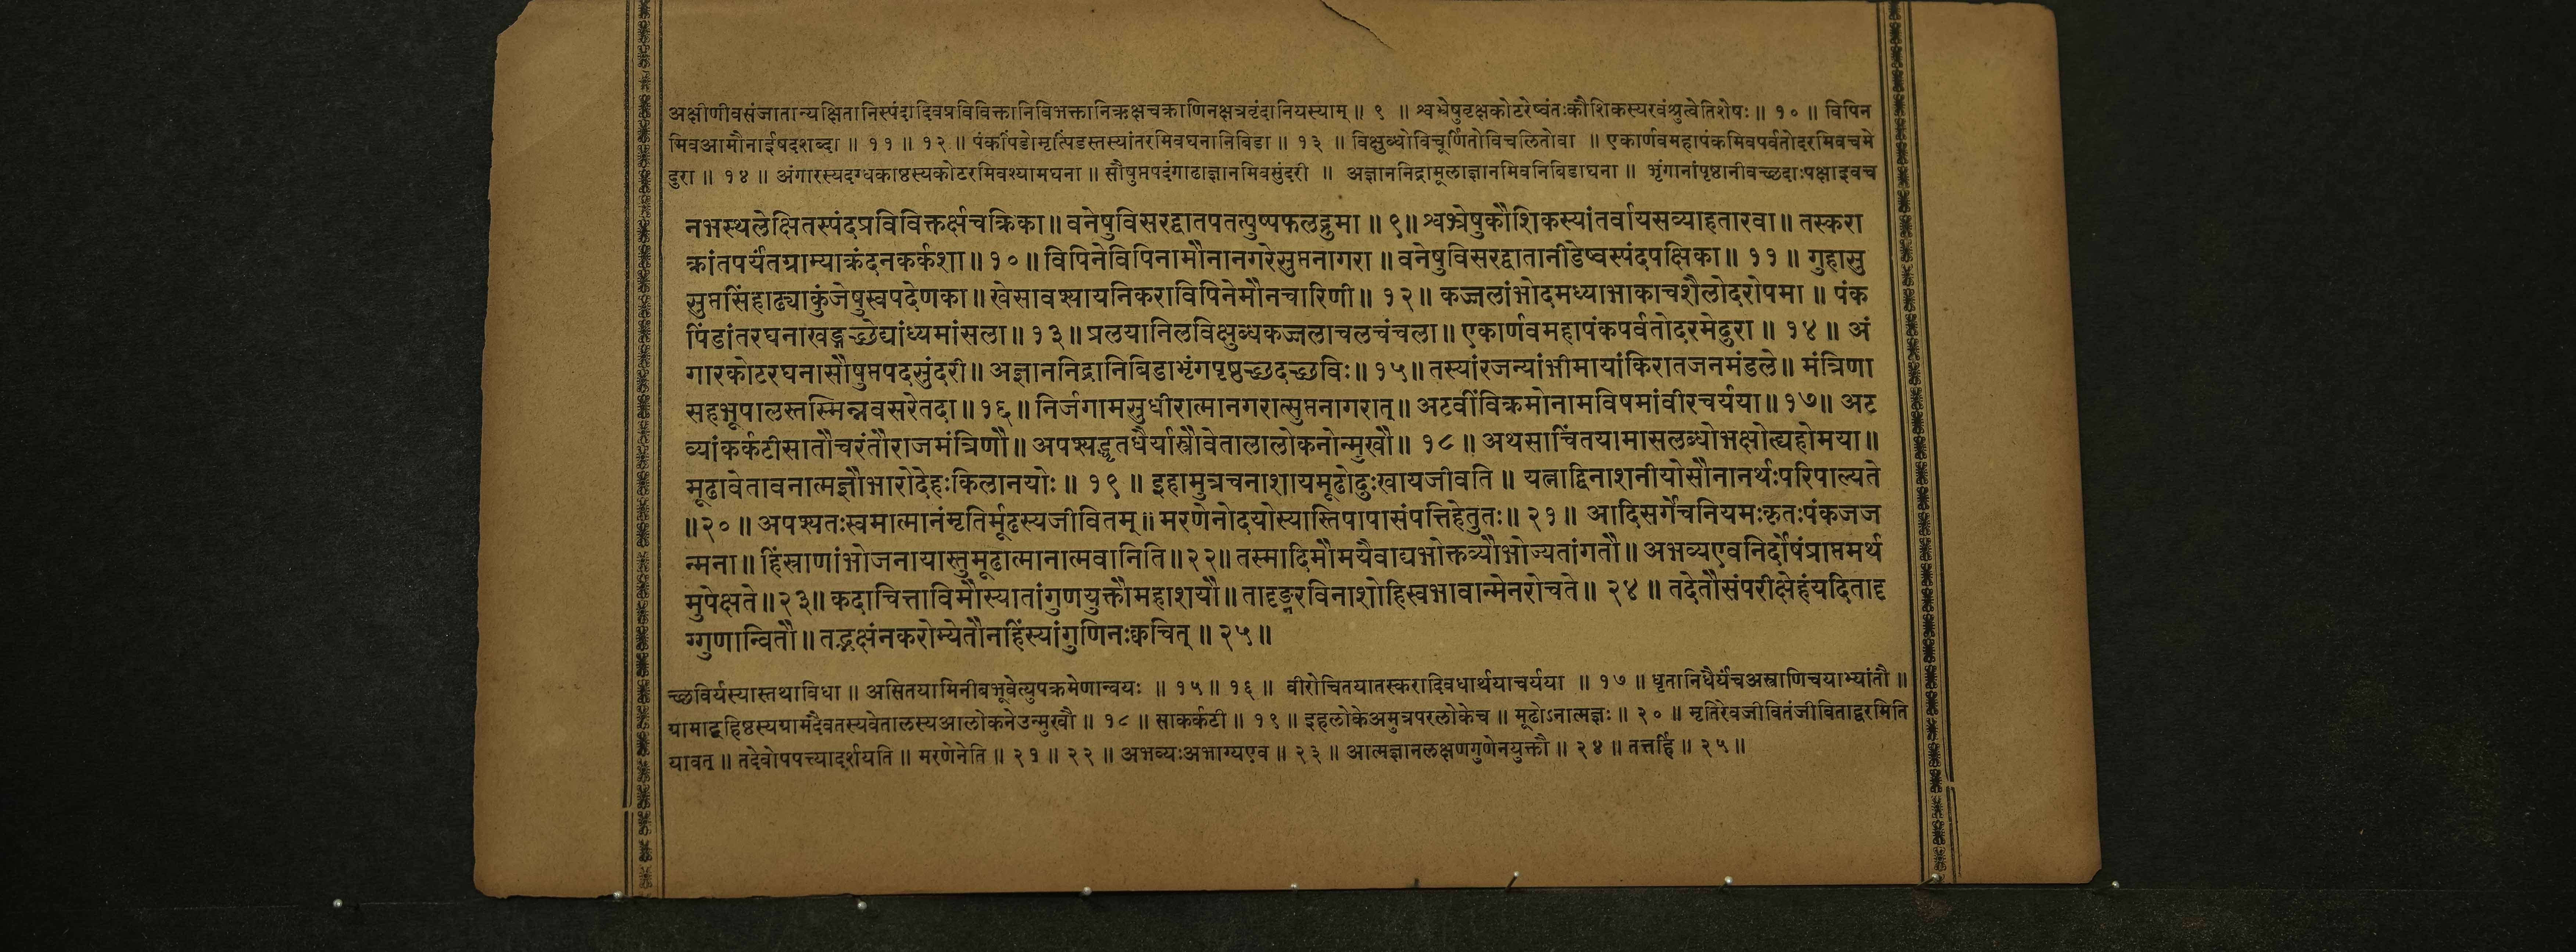 अक्षीणीवसंजातान्यक्षितानिस्पंदादिवप्रविविक्तानिविभक्तानिऋक्षचक्राणिनक्षत्रवृंदानियस्याम् ॥ ९ ॥ श्वभ्रेषुवृक्षकोटरेष्वंतःकौशिकस्यरवंश्रुत्वेतिशेषः ॥ १० ॥ विपिन
मिवआमौनाईषदशब्दा ॥ ११ ॥ १२ ॥ पंकपिंडोमृत्पिंडस्तस्यांतरमिवघनानिबिडा ॥ १३ ॥ विक्षुब्धोविचूर्णितोविचलितोवा ॥ एकार्णवमहापंकमिवपर्वतोदरमिवचमे
दुरा ॥ १४ ॥ अंगारस्यदग्धकाष्ठस्यकोटरमिवश्यामघना ॥ सौषुप्तपदंगाढाज्ञानमिवसुंदरी ॥ अज्ञाननिद्रामूलाज्ञानमिवनिबिडाघना ॥ भृंगानांपृष्ठानीवच्छदाःपक्षाइवच
नभस्थलेक्षितस्पंदप्रविविक्तर्क्षचक्रिका ॥ वनेषुविसरद्वातपतत्पुष्पफलद्रुमा ॥ ९ ॥ श्वभ्रेषुकौशिकस्यांतर्वायसव्याहृतारवा ॥ तस्करा
क्रांतपर्यंतग्राम्याक्रंदनकर्कशा ॥ १० ॥ विपिनेविपिनामौनानगरेसुप्तनागरा ॥ वनेषुविसरद्वातानीडेष्वस्पंदपक्षिका ॥ ११ ॥ गुहासु
सुप्तसिंहाढ्याकुंजेषुस्वपदेणका ॥ खेसावश्यायनिकराविपिनेमौनचारिणी ॥ १२ ॥ कज्जलांभोदमध्याभाकाचशैलोदरोपमा ॥ पंक
पिंडांतरघनाखड्गच्छेद्यांध्यमांसला ॥ १३ ॥ प्रलयानिलविक्षुब्धकज्जलाचलचंचला ॥ एकार्णवमहापंकपर्वतोदरमेदुरा ॥ १४ ॥ अं
गारकोटरघनासौषुप्तपदसुंदरी ॥ अज्ञाननिद्रानिबिडाभृंगपृष्ठच्छदच्छविः ॥ १५ ॥ तस्यांरजन्यांभीमायांकिरातजनमंडले ॥ मंत्रिणा
सहभूपालस्तस्मिन्नवसरेतदा ॥ १६ ॥ निर्जगामसुधीरात्मानगरात्सुप्तनागरात् ॥ अटवींविक्रमोनामविषमांवीरचर्यया ॥ १७ ॥ अट
व्यांकर्कटीसातौचरंतौराजमंत्रिणौ ॥ अपश्यद्धृतधैर्यास्त्रौवेतालालोकनोन्मुखौ ॥ १८ ॥ अथसाचिंतयामासलब्धोभक्षोत्द्यहोमया ॥
मूढावेतावनात्मज्ञौभारोदेहःकिलानयोः ॥ १९ ॥ इहामुत्रचनाशायमूढोदुःखायजीवति ॥ यत्नाद्विनाशनीयोसौनानर्थःपरिपाल्यते
॥ २० ॥ अपश्यतःस्वमात्मानंमृतिर्मूढस्यजीवितम् ॥ मरणेनोदयोस्यास्तिपापासंपत्तिहेतुतः ॥ २१ ॥ आदिसर्गेचनियमःकृतःपंकजज
न्मना ॥ हिंस्राणांभोजनायास्तुमूढात्मानात्मवानिति ॥ २२ ॥ तस्मादिमौमयैवाद्यभोक्तव्यौभोज्यतांगतौ ॥ अभव्यएवनिर्दोषंप्राप्तमर्थ
मुपेक्षते ॥ २३ ॥ कदाचित्ताविमौस्यातांगुणयुक्तौमहाशयौ ॥ तादृङ्नरविनाशोहिस्वभावान्मेनरोचते ॥ २४ ॥ तदेतौसंपरीक्षेहंयदितादृ
ग्गुणान्वितौ ॥ तद्भक्षंनकरोम्येतौनहिंस्यांगुणिनःक्वचित् ॥ २५ ॥
च्छविर्यस्यास्तथाविधा ॥ असितयामिनीबभूवेत्युपक्रमेणान्वयः ॥ १५ ॥ १६ ॥ वीरोचितयातस्करादिवधार्थयाचर्यया ॥ १७ ॥ धृतानिधैर्यंचअस्त्राणिचयाभ्यांतौ ॥
यामाद्बहिष्ठस्यग्रामदैवतस्यवेतालस्यआलोकनेउन्मुखौ ॥ १८ ॥ साकर्कटी ॥ १९ ॥ इहलोकेअमुत्रपरलोकेच ॥ मूढोऽनात्मज्ञः ॥ २० ॥ मृतिरेवजीवितंजीविताद्वरमिति
यावत् ॥ तदेवोपपत्त्यादर्शयति ॥ मरणेनेति ॥ २१ ॥ २२ ॥ अभव्यःअभाग्यएव ॥ २३ ॥ आत्मज्ञानलक्षणगुणेनयुक्तौ ॥ २४ ॥ तत्तर्हि ॥ २५ ॥